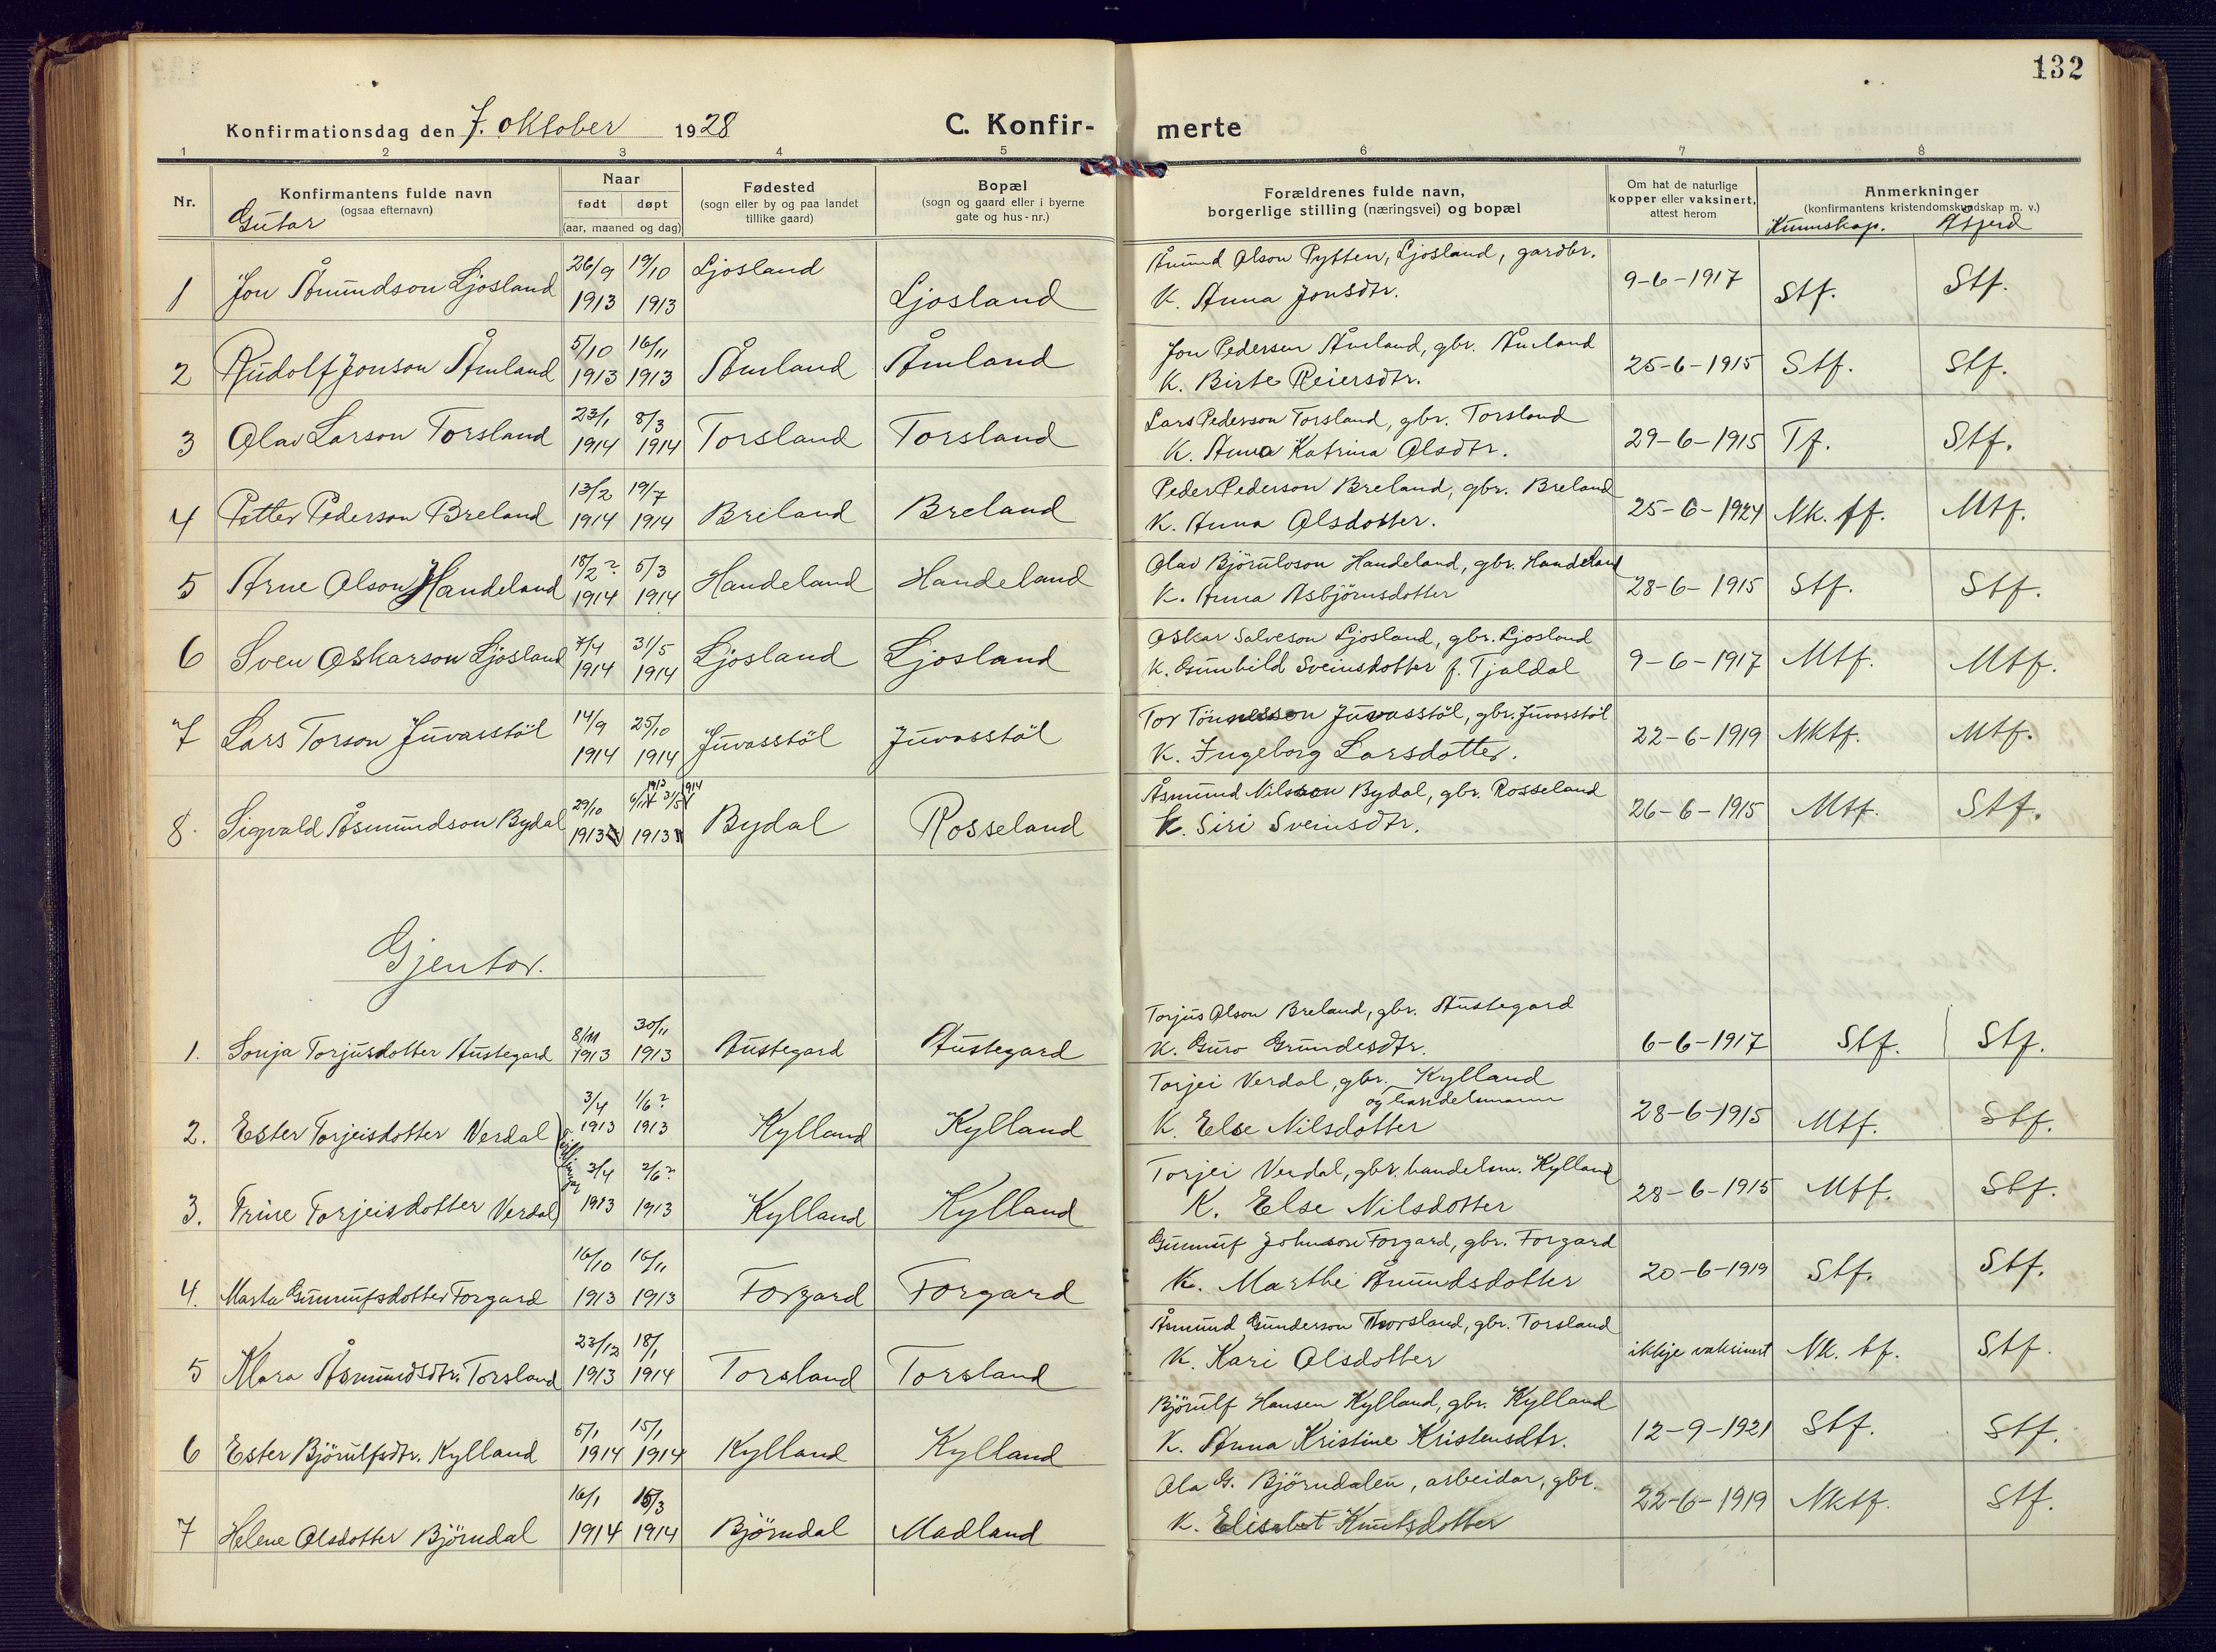 132
Konfirmationsdag den 7. oktober 1928
C. Konfir- merte
1 2 3 4 5 6 7 8
Nr.
Konfirmantens fulde navn
(ogsaa efternavn)
Gutar
Naar
født døpt
(aar, maaned og dag)
Fødested
(sogn eller by og paa landet
tillike gaard)
Bopæl
(sogn og gaard eller i byerne
gate og hus-nr.)
Forældrenes fulde navn,
borgerlige stilling (næringsvei) og bopæl
Om hat de naturlige
kopper eller vaksinert,
attest herom
Anmerkninger
(konfirmantens kristendomskundskap m. v.)
Kunnskap. Åtferd
1 Jon Åmundson Ljosland 26/9 1913 19/10 1913 Ljosland Ljosland
Åmund Olson Pytten, Ljosland, gardbr.
K. Anna Jonsdtr. 9-6-1917 Stf. Stf.
2 Rudolf Jonson Åmland 5/10 1913 16/11 1913 Åmland Åmland
Jon Pedersen Åmland, gbr. Åmland
K. Birte Reiersdtr. 25-6-1915 Stf. Stf.
3 Olav Larson Torsland 23/1 1914 8/3 1914 Torsland Torsland
Lars Pederson Torsland, gbr. Torsland
K. Anna Katrina Olsdtr. 29-6-1915 Tf. Stf.
4 Petter Pederson Breland 13/2 1914 19/7 1914 Breland Breland
Peder Pederson Breland, gbr. Breland
K. Anna Olsdotter. 25-6-1924 Nk. tf. Mtf.
5 Arne Olson Handeland 18/2? 1914 5/3 1914 Handeland Handeland
Olav Björulvson Handeland, gbr. Handeland
K. Anna Asbjörnsdotter 28-6-1915 Stf. Stf.
6 Sven Oskarson Ljosland 7/4 1914 31/5 1914 Ljosland Ljosland
Oskar Salveson Ljosland, gbr. Ljosland
K. Gunhild Sveinsdotter f. Tjaldal 9-6-1917 Mtf. Mtf.
7 Lars Torson Juvasstöl 14/9 1914 25/10 1914 Juvasstöl Juvasstöl
Tor Tönnesson Juvasstöl, gbr. Juvasstöl
K. Ingeborg Larsdotter. 22-6-1919 Nktf. Mtf.
8. Sigvald Åsmundson Bydal 29/10 1913 1913 Bydal Rosseland
Åsmund Nilsson Bydal, gbr. Rosseland
K. Siri Sveinsdtr. 26-6-1915 Mtf. Stf.
Gjentor.
1. Sonja Torjusdotter Austegard 8/11 1913 30/11 1913 Austegard Austegard
Torjus Olson Breland, gbr. Austegard
K. Guro Grundesdtr. 6-6-1917 Stf. Stf.
2. Ester Torjeisdotter Verdal 3/4 1913 1/6? 1913 Kylland Kylland
Torjei Verdal, gbr. Kylland
og handelsmann
K. Else Nilsdotter 28-6-1915 Mtf. Stf.
tvillingar
3. Trine Torjeisdotter Verdal 3/4 1913 2/6? 1913 Kylland Kylland
Torjei Verdal, gbr. handelsm. Kylland
K. Else Nilsdotter 28-6-1915 Mtf. Stf.
4. Marta Gunnufsdotter Forgard 16/10 1913 16/11 1913 Forgard Forgard
Gunnuf Johnson Forgard, gbr. Forgard
K. Marthe Åmundsdotter 20-6-1919 Stf. Stf.
5 Klara Åsmundsdtr. Torsland 23/12 1913 18/1 1914 Torsland Torsland
Åsmund Gunderson Torsland, gbr. Torsland
K. Kari Olsdotter ikkje vaksinert Nk. tf. Stf.
6 Ester Björulfsdtr. Kylland 5/1 1914 15/1 1914 Kylland Kylland
Björulf Hansen Kylland, gbr. Kylland
K. Anna Kristine Kristensdtr. 12-9-1921 Stf. Stf.
7 Helene Olsdotter Björndal 16/1 1914 15/3 1914 Björndal Madland
Ola G. Björndalen, arbeidar, gbr.
K. Elisabet Knutsdotter 22-6-1919 Nktf. Stf.